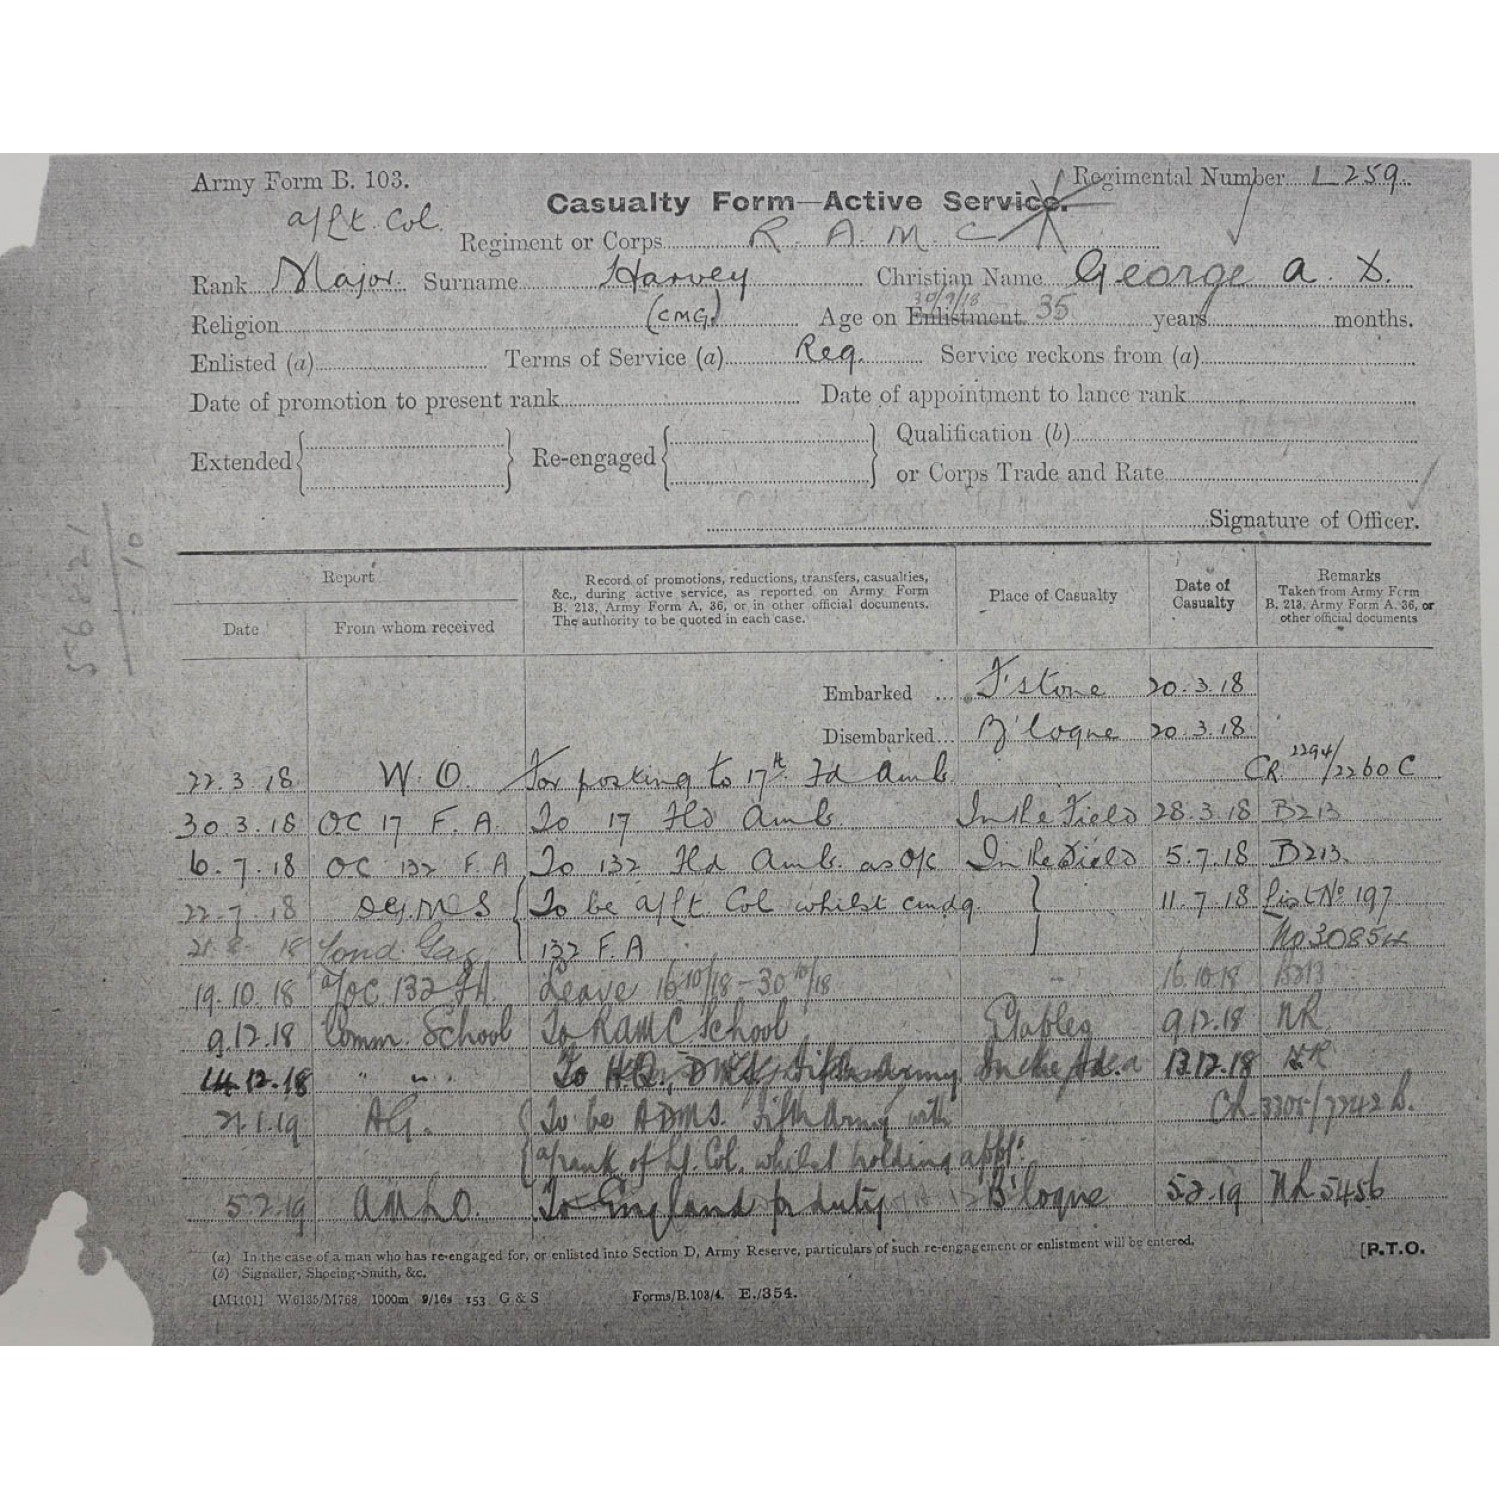 Army Form B. 103.
Regimental Number L 259.
Casualty Form—Active Service.
a/Lt. Col.
Regiment or Corps R. A. M. C
Rank Major. Surname Harvey Christian Name George A. D.
(CMG) 30/9/18
Religion Age on Enlistment 35 years months.
Enlisted (a) Terms of Service (a) Reg. Service reckons from (a)
Date of promotion to present rank Date of appointment to lance rank
Extended Re-engaged Qualification (b)
or Corps Trade and Rate
Signature of Officer.
56821
10
Report
Date From whom received
Record of promotions, reductions, transfers, casualties,
&c., during active service, as reported on Army Form
B. 213, Army Form A. 36, or in other official documents.
The authority to be quoted in each case.
Place of Casualty
Date of
Casualty
Remarks
Taken from Army Form
B. 213, Army Form A. 36, or
other official documents
Embarked ... F'stone 20.3.18
Disembarked... B'logne 20.3.18
22.3.18 W.O. For posting to 17th Fd Amb. CR 2294/2260 C
30.3.18 OC 17 F.A. To 17 Fld Amb. In the Field 28.3.18 B213
6.7.18 OC 132 F.A To 132 Fld Amb. as O/C In the Field 5.7.18 B213.
22.7.18 DGMS To be a/Lt. Col whilst cmdg. 11.7.18 List No 197
21.8.18 Lond. Gaz 132 F.A No 30854
19.10.18 a/OC 132 FA. Leave 16/10/18 - 30/10/18 16.10.18 B213
9.12.18 Comm. School To RAMC School Etables 9.12.18 NR
14.12.18 " " To HQ., Fifth Army In the Fd. 13.12.18 NR
21.1.19 AG. To be ADMS. Fifth Army with CR 3305/7242 B.
a/rank of Lt. Col. whilst holding appt.
5.2.19 AMLO. To England for duty B'logne 5.2.19 NR 5456
(a) In the case of a man who has re-engaged for, or enlisted into Section D, Army Reserve, particulars of such re-engagement or enlistment will be entered.
(b) Signaller, Shoeing-Smith, &c.
[P.T.O.
[M1101] W6135/M768 1000m 9/16s 153 G & S Forms/B.103/4. E./354.